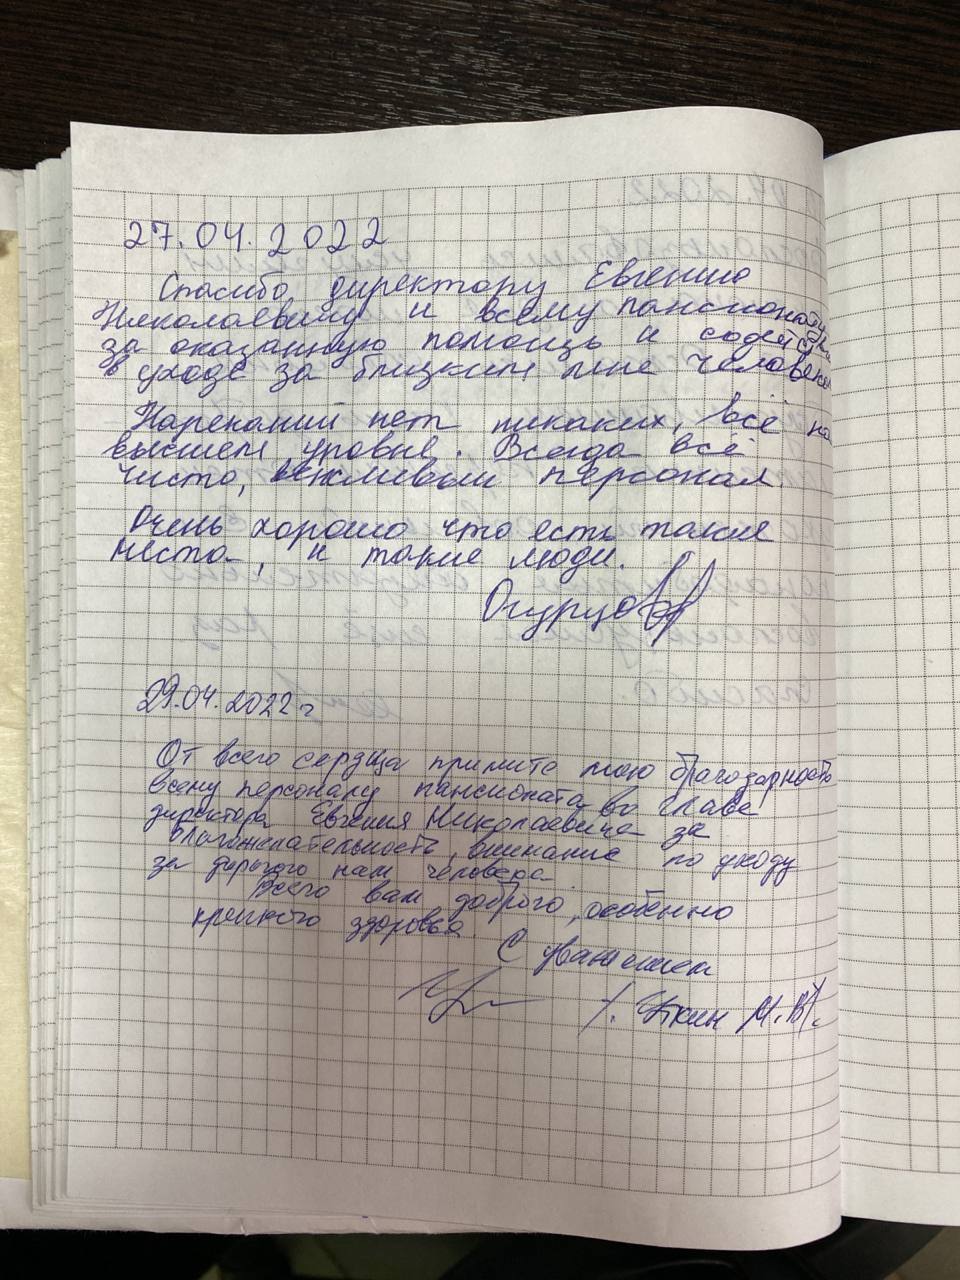 27.04.2022
Спасибо директору Евгению
Николаевичу и всему пансионату
за оказанную помощь и содейств
в уходе за близким мне человеком
Нареканий нет никаких, всё на
высшем уровне. Всегда всё
чисто, вежливый персонал
Очень хорошо что есть такие
места, и такие люди.
Огурцов
29.04.2022 г
От всего сердца примите мою благодарность
всему персоналу пансионата во главе
директора Евгения Николаевича за
благожелательность, внимание по уходу
за дорогого нам человека
Всего вам доброго, особенно
крепкого здоровья
С уважением
М.В.